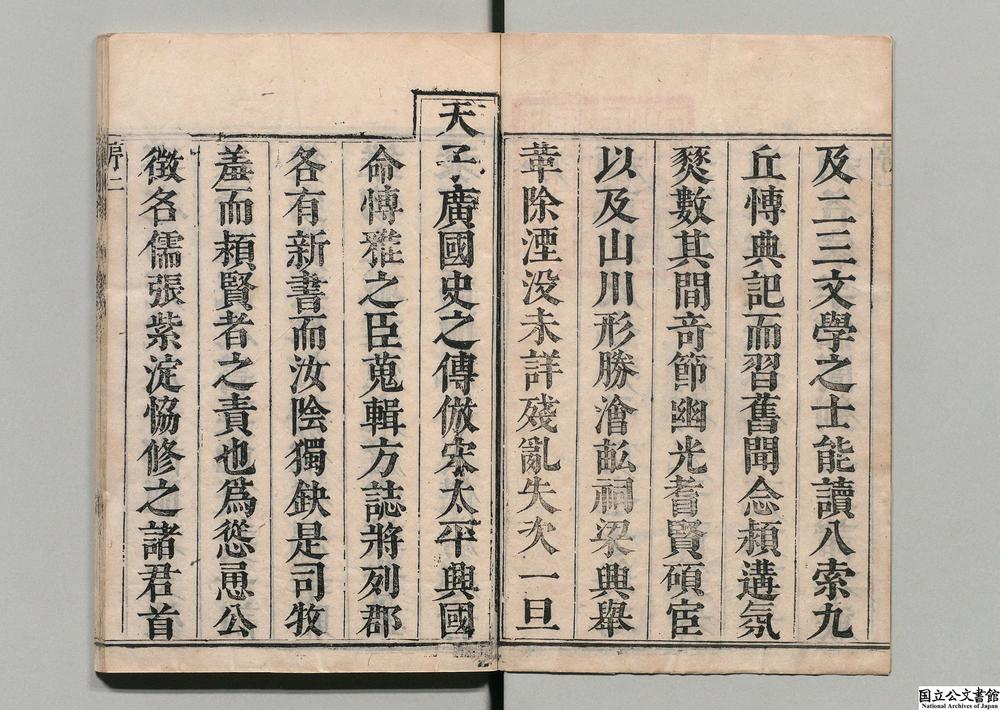 及二三文學之士能讀八索九
丘愽典記而習舊聞念潁遘氛
燹數其間竒節幽光耆賢碩宦
以及山川形勝澮畆祠梁興舉
葦除湮没未詳殘亂失次一旦
天子廣國史之傳倣宋太平興國
命愽雅之臣蒐輯方誌將列郡
各有新書而汝隂獨鈌是司牧
羞而潁賢者之責也爲慫恿公
徵名儒張紫淀恊修之諸君首
序二
国立公文書館
National Archives of Japan